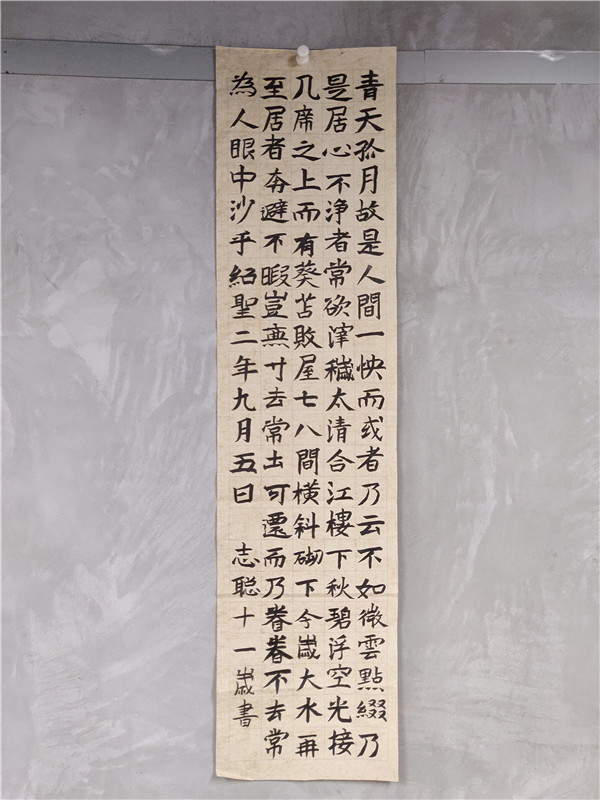 青天孤月故是人間一怏而或者乃云不如微雲點綴乃
是居心不淨者常欲滓穢太清合江樓下秋碧浮空光接
几席之上而有葵苫敗屋七八間橫斜砌下今歲大水再
至居者奔避不暇豈無寸去常土可遷而乃眷眷不去常
為人眼中沙乎紹聖二年九月五日 志聪十一歲書